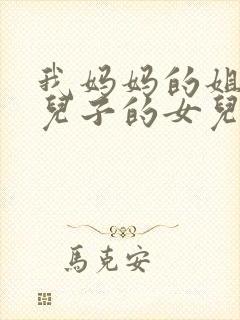 我妈妈的姐
兒子的女兒
馬克安